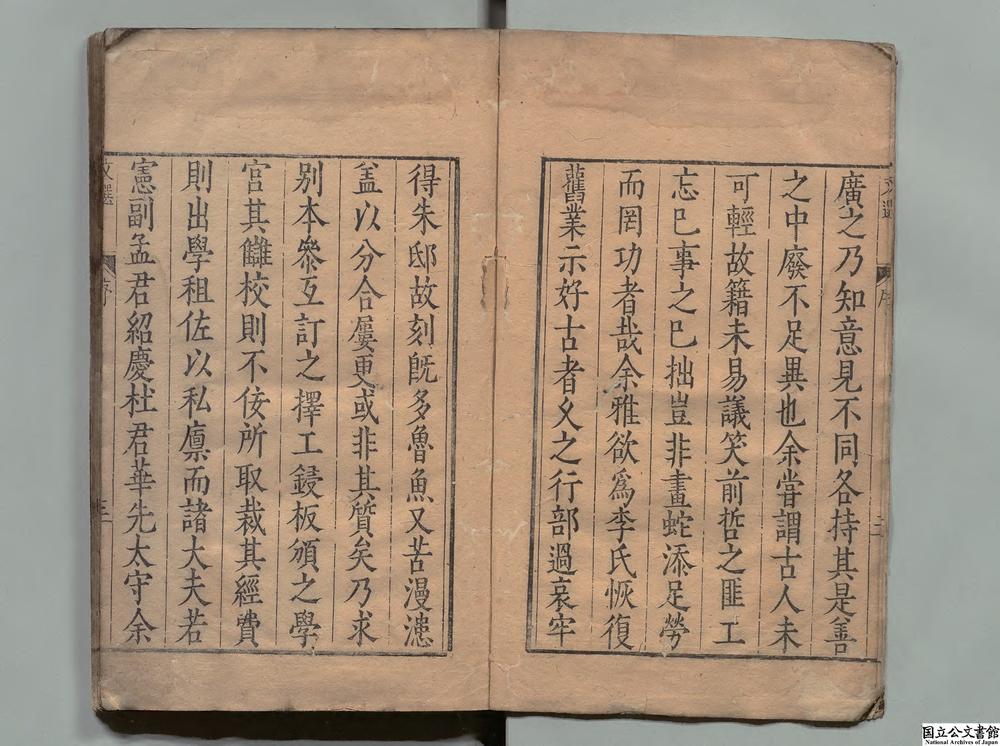 廣之乃知意見不同各持其是善
之中廢不足異也余嘗謂古人未
可輕故籍未易議笑前哲之匪工
忘已事之已拙豈非畫蛇添足勞
而罔功者哉余雅欲爲李氏恢復
舊業示好古者乆之行部過哀牢
得朱邸故刻旣多魯魚又苦漫漶
盖以分合屢更或非其質矣乃求
別本叅互訂之擇工鋟板頒之學
宮其讎校則不佞所取裁其經費
則出學租佐以私廩而諸大夫若
憲副孟君紹慶杜君華先太守余
文選
序
三
国立公文書館
National Archives of Japan